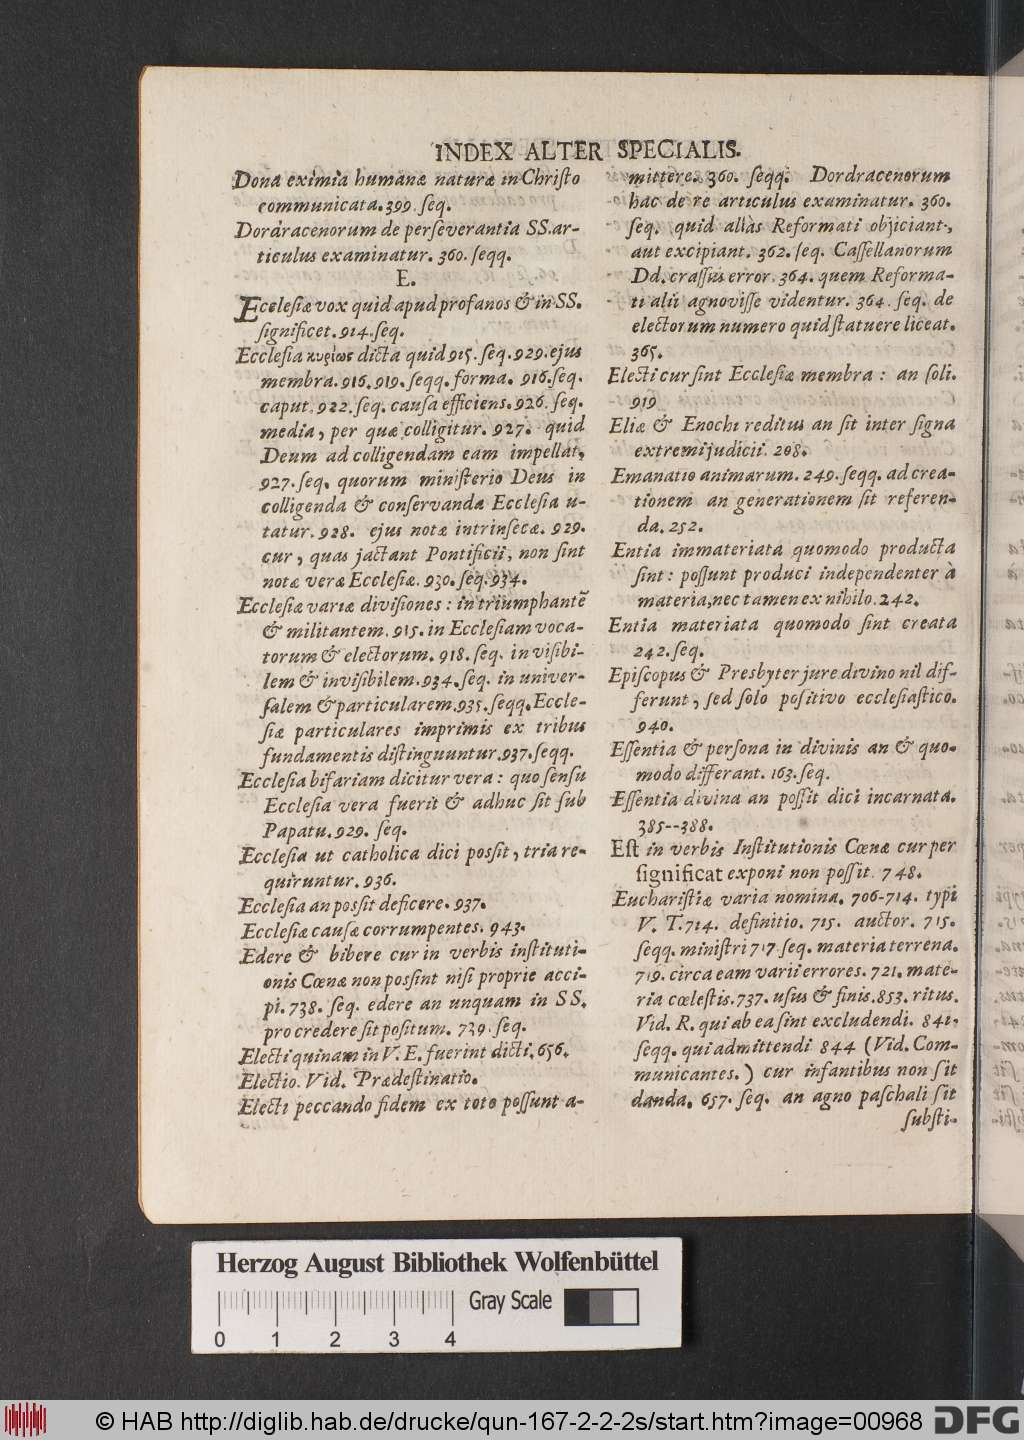 INDEX ALTER SPECIALIS.
Dona eximia humanæ naturæ in Christo
communicata. 399. seq.
Dordracenorum de perseverantia SS. ar-
ticulus examinatur. 360. seqq.
E.
Ecclesiæ vox quid apud profanos & in SS.
significet. 914. seq.
Ecclesia κυρίως dicta quid 915. seq. 929. ejus
membra. 916. 919. seqq. forma. 916. seq.
caput. 922. seq. causa efficiens. 926. seq.
media, per quæ colligitur. 927. quid
Deum ad colligendam eam impellat,
927. seq. quorum ministerio Deus in
colligenda & conservanda Ecclesia u-
tatur. 928. ejus notæ intrinsecæ. 929.
cur, quas jactant Pontificii, non sint
notæ veræ Ecclesiæ. 930. seq. 934.
Ecclesiæ variæ divisiones: in triumphantẽ
& militantem. 915. in Ecclesiam voca-
torum & electorum. 918. seq. in visibi-
lem & invisibilem. 934. seq. in univer-
salem & particularem. 935. seqq. Eccle-
siæ particulares imprimis ex tribus
fundamentis distinguuntur. 937. seqq.
Ecclesia bifariam dicitur vera: quo sensu
Ecclesia vera fuerit & adhuc sit sub
Papatu. 929. seq.
Ecclesia ut catholica dici possit, tria re-
quiruntur. 936.
Ecclesia an possit deficere. 937.
Ecclesiæ causæ corrumpentes. 943.
Edere & bibere cur in verbis instituti-
onis Cœnæ non possint nisi proprie acci-
pi. 738. seq. edere an unquam in SS.
pro credere sit positum. 739. seq.
Electi quinam in V. E. fuerint dicti. 656.
Electio. Vid. Prædestinatio.
Electi peccando fidem ex toto possunt a-
mittere. 360. seqq. Dordracenorum
hac de re articulus examinatur. 360.
seq. quid aliàs Reformati objiciant,
aut excipiant. 362. seq. Cassellanorum
Dd. crassus error. 364. quem Reforma-
ti alii agnovisse videntur. 364. seq. de
electorum numero quid statuere liceat.
365.
Electi cur sint Ecclesiæ membra: an soli.
919
Eliæ & Enochi reditus an sit inter signa
extremi judicii. 208.
Emanatio animarum. 249. seqq. ad crea-
tionem an generationem sit referen-
da. 252.
Entia immateriata quomodo producta
sint: possunt produci independenter à
materia, nec tamen ex nihilo. 242.
Entia materiata quomodo sint creata
242. seq.
Episcopus & Presbyter jure divino nil dif-
ferunt, sed solo positivo ecclesiastico.
940.
Essentia & persona in divinis an & quo-
modo differant. 163. seq.
Essentia divina an possit dici incarnata.
385--388.
Est in verbis Institutionis Cœnæ cur per
significat exponi non possit. 748.
Eucharistiæ varia nomina. 706-714. typi
V. T. 714. definitio. 715. auctor. 715.
seqq. ministri 717. seq. materia terrena.
719. circa eam varii errores. 721. mate-
ria cœlestis. 737. usus & finis. 853. ritus.
Vid. R. qui ab ea sint excludendi. 841.
seqq. qui admittendi 844 (Vid. Com-
municantes.) cur infantibus non sit
danda. 657. seq. an agno paschali sit
substi-
Herzog August Bibliothek Wolfenbüttel
Gray Scale
0 1 2 3 4
© HAB http://diglib.hab.de/drucke/qun-167-2-2-2s/start.htm?image=00968
DFG